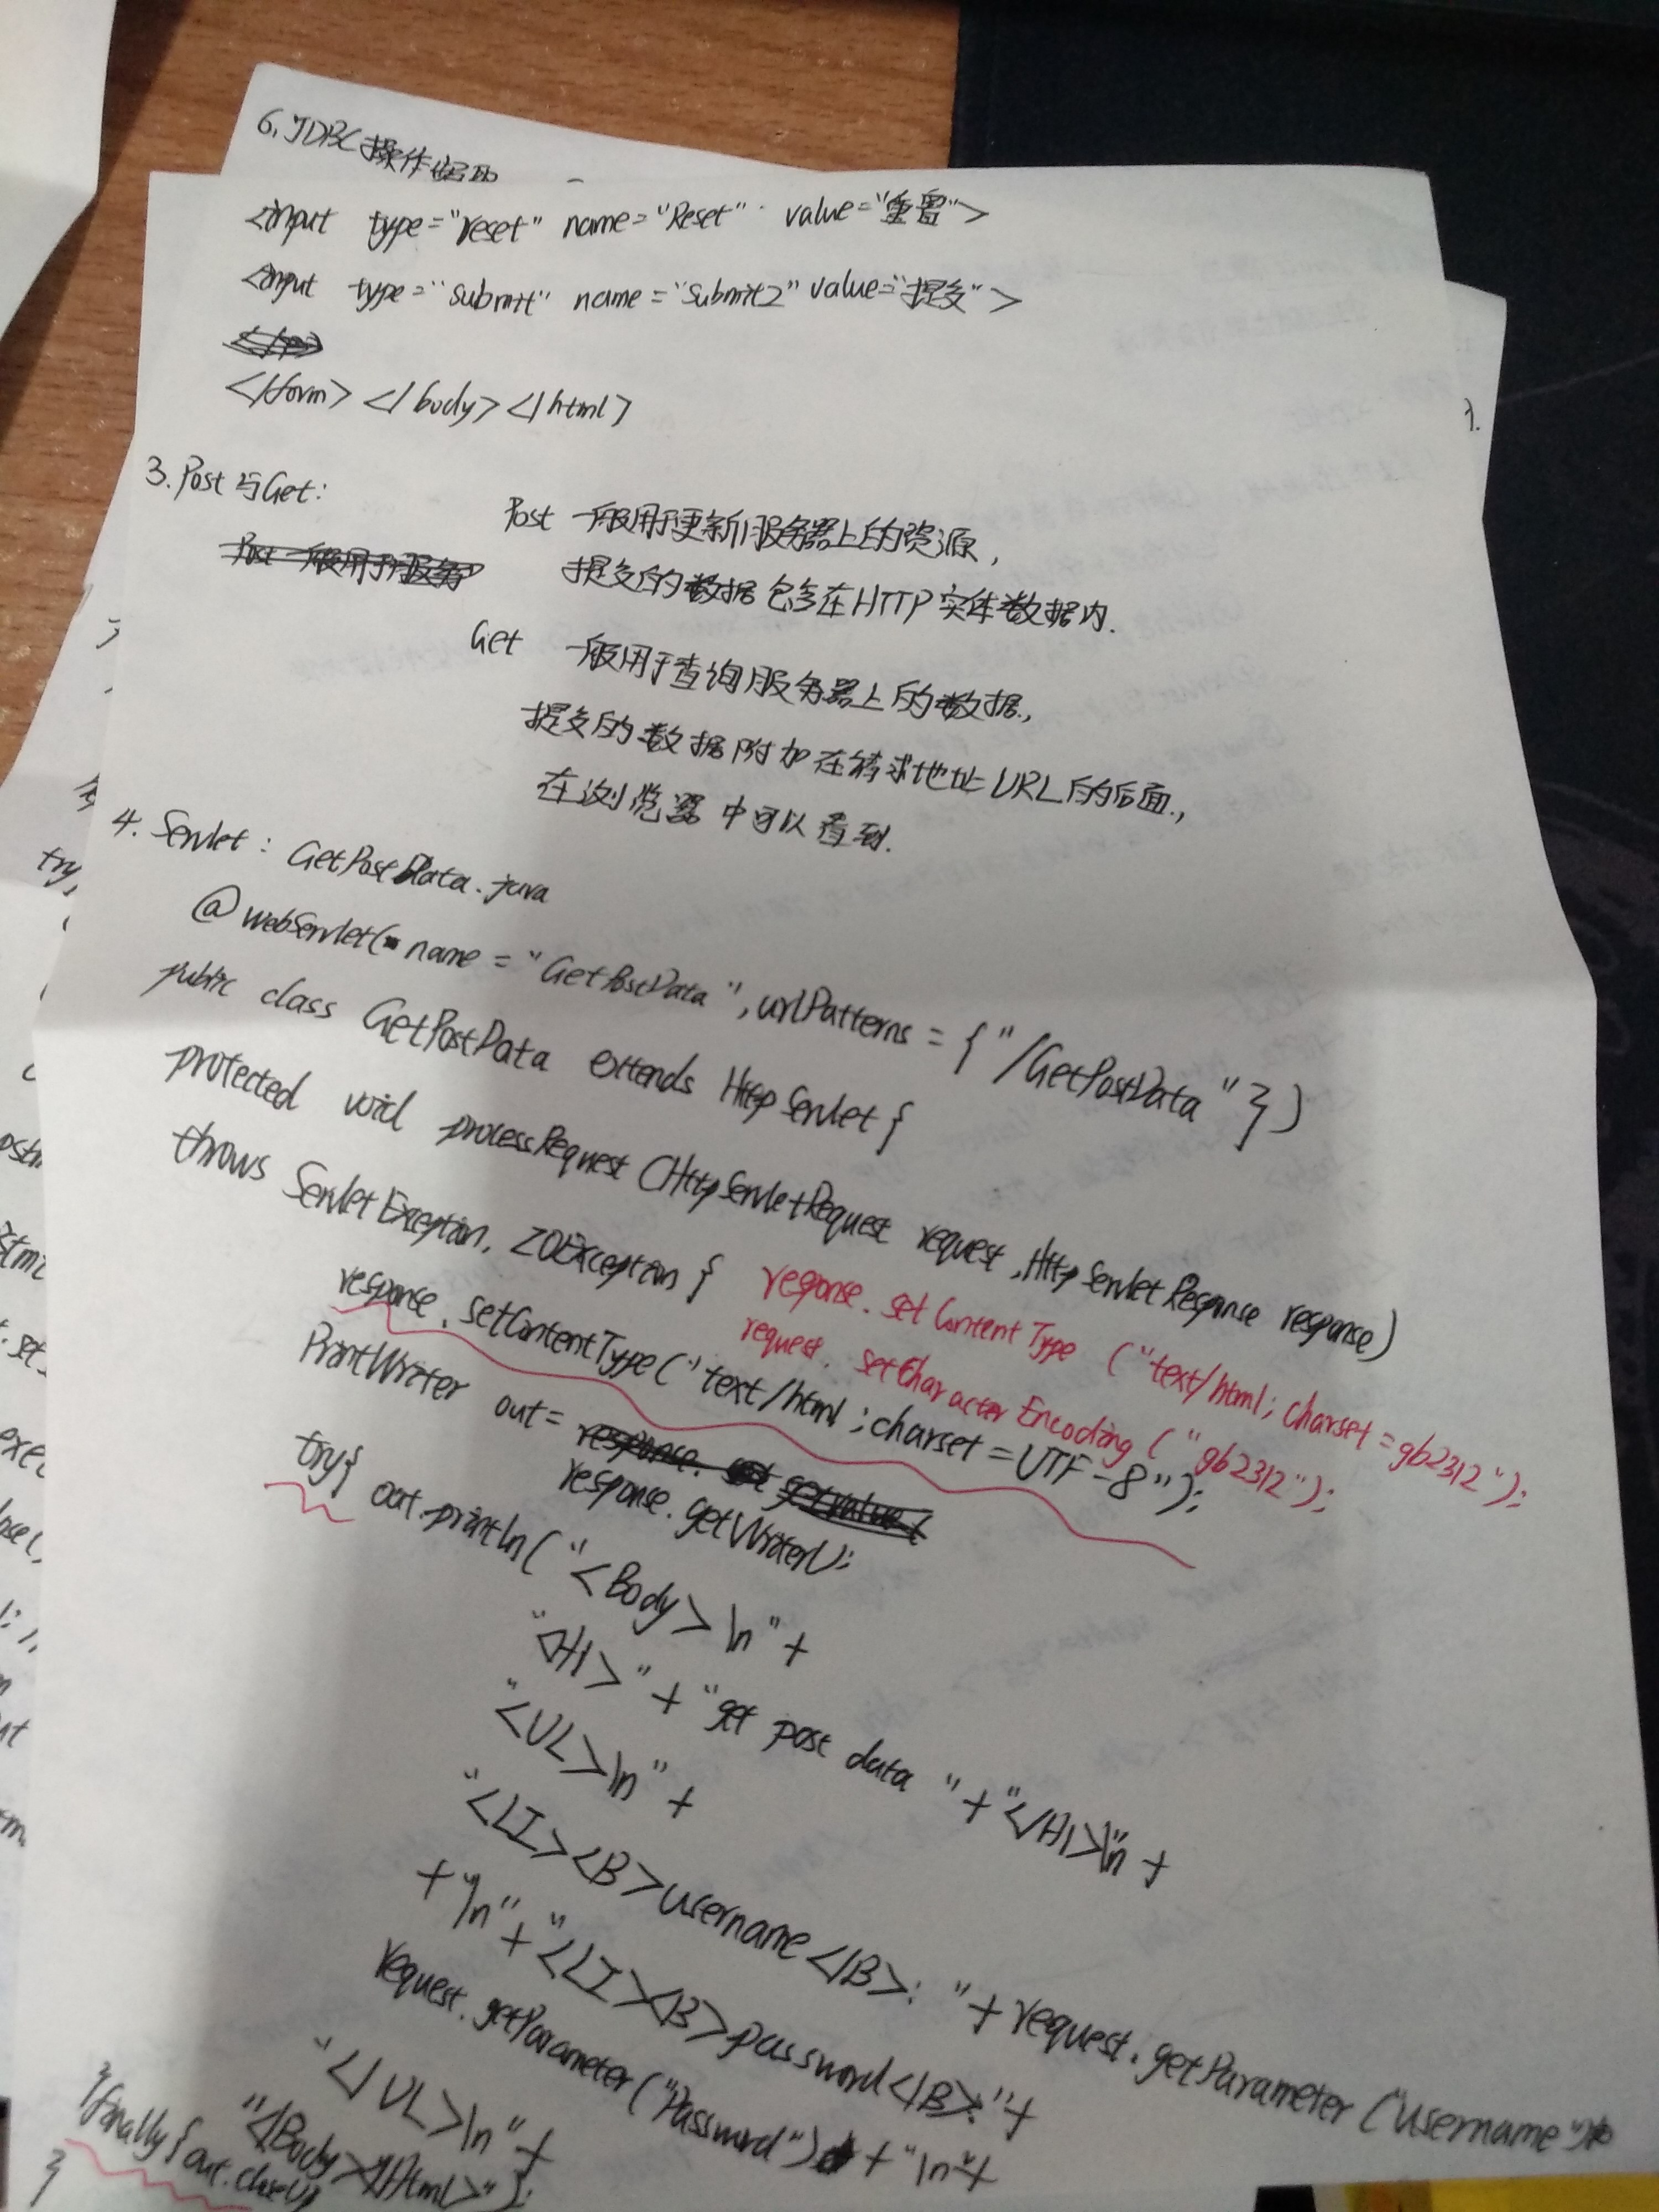 6. JDBC操作
<input type="reset" name="Reset" value="重置">
<input type="submit" name="Submit2" value="提交">
</form> </body> </html>
3. Post 与 Get:
Post 一般用于更新服务器上的资源,
Post 一般用于服务
提交的数据包含在HTTP实体数据内.
Get 一般用于查询服务器上的数据,
提交的数据附加在请求地址URL的后面,
在浏览器中可以看到.
4. Servlet : GetPostData.java
@webServlet( name = "GetPostData", urlPatterns = {"/GetPostData"})
public class GetPostData extends HttpServlet {
protected void processRequest (HttpServletRequest request, HttpServletResponse response)
throws ServletException, IOException {
response. setContentType ("text/html; charset=gb2312");
request. setCharacterEncoding ("gb2312");
response. setContentType("text/html ; charset = UTF-8");
PrintWriter out =
response. getWriter();
try{ out.println( "<Body> \n" +
"<H1>" + "get post data " + "</H1>\n" +
"<UL>\n" +
"<LI><B>username</B>: " + request. getParameter ("Username")
+ "\n" + "<LI><B>password</B>:" +
request. getParameter("Password") + "\n" +
"</UL>\n" +
"</Body></Html>");
}finally{ out.close();
}